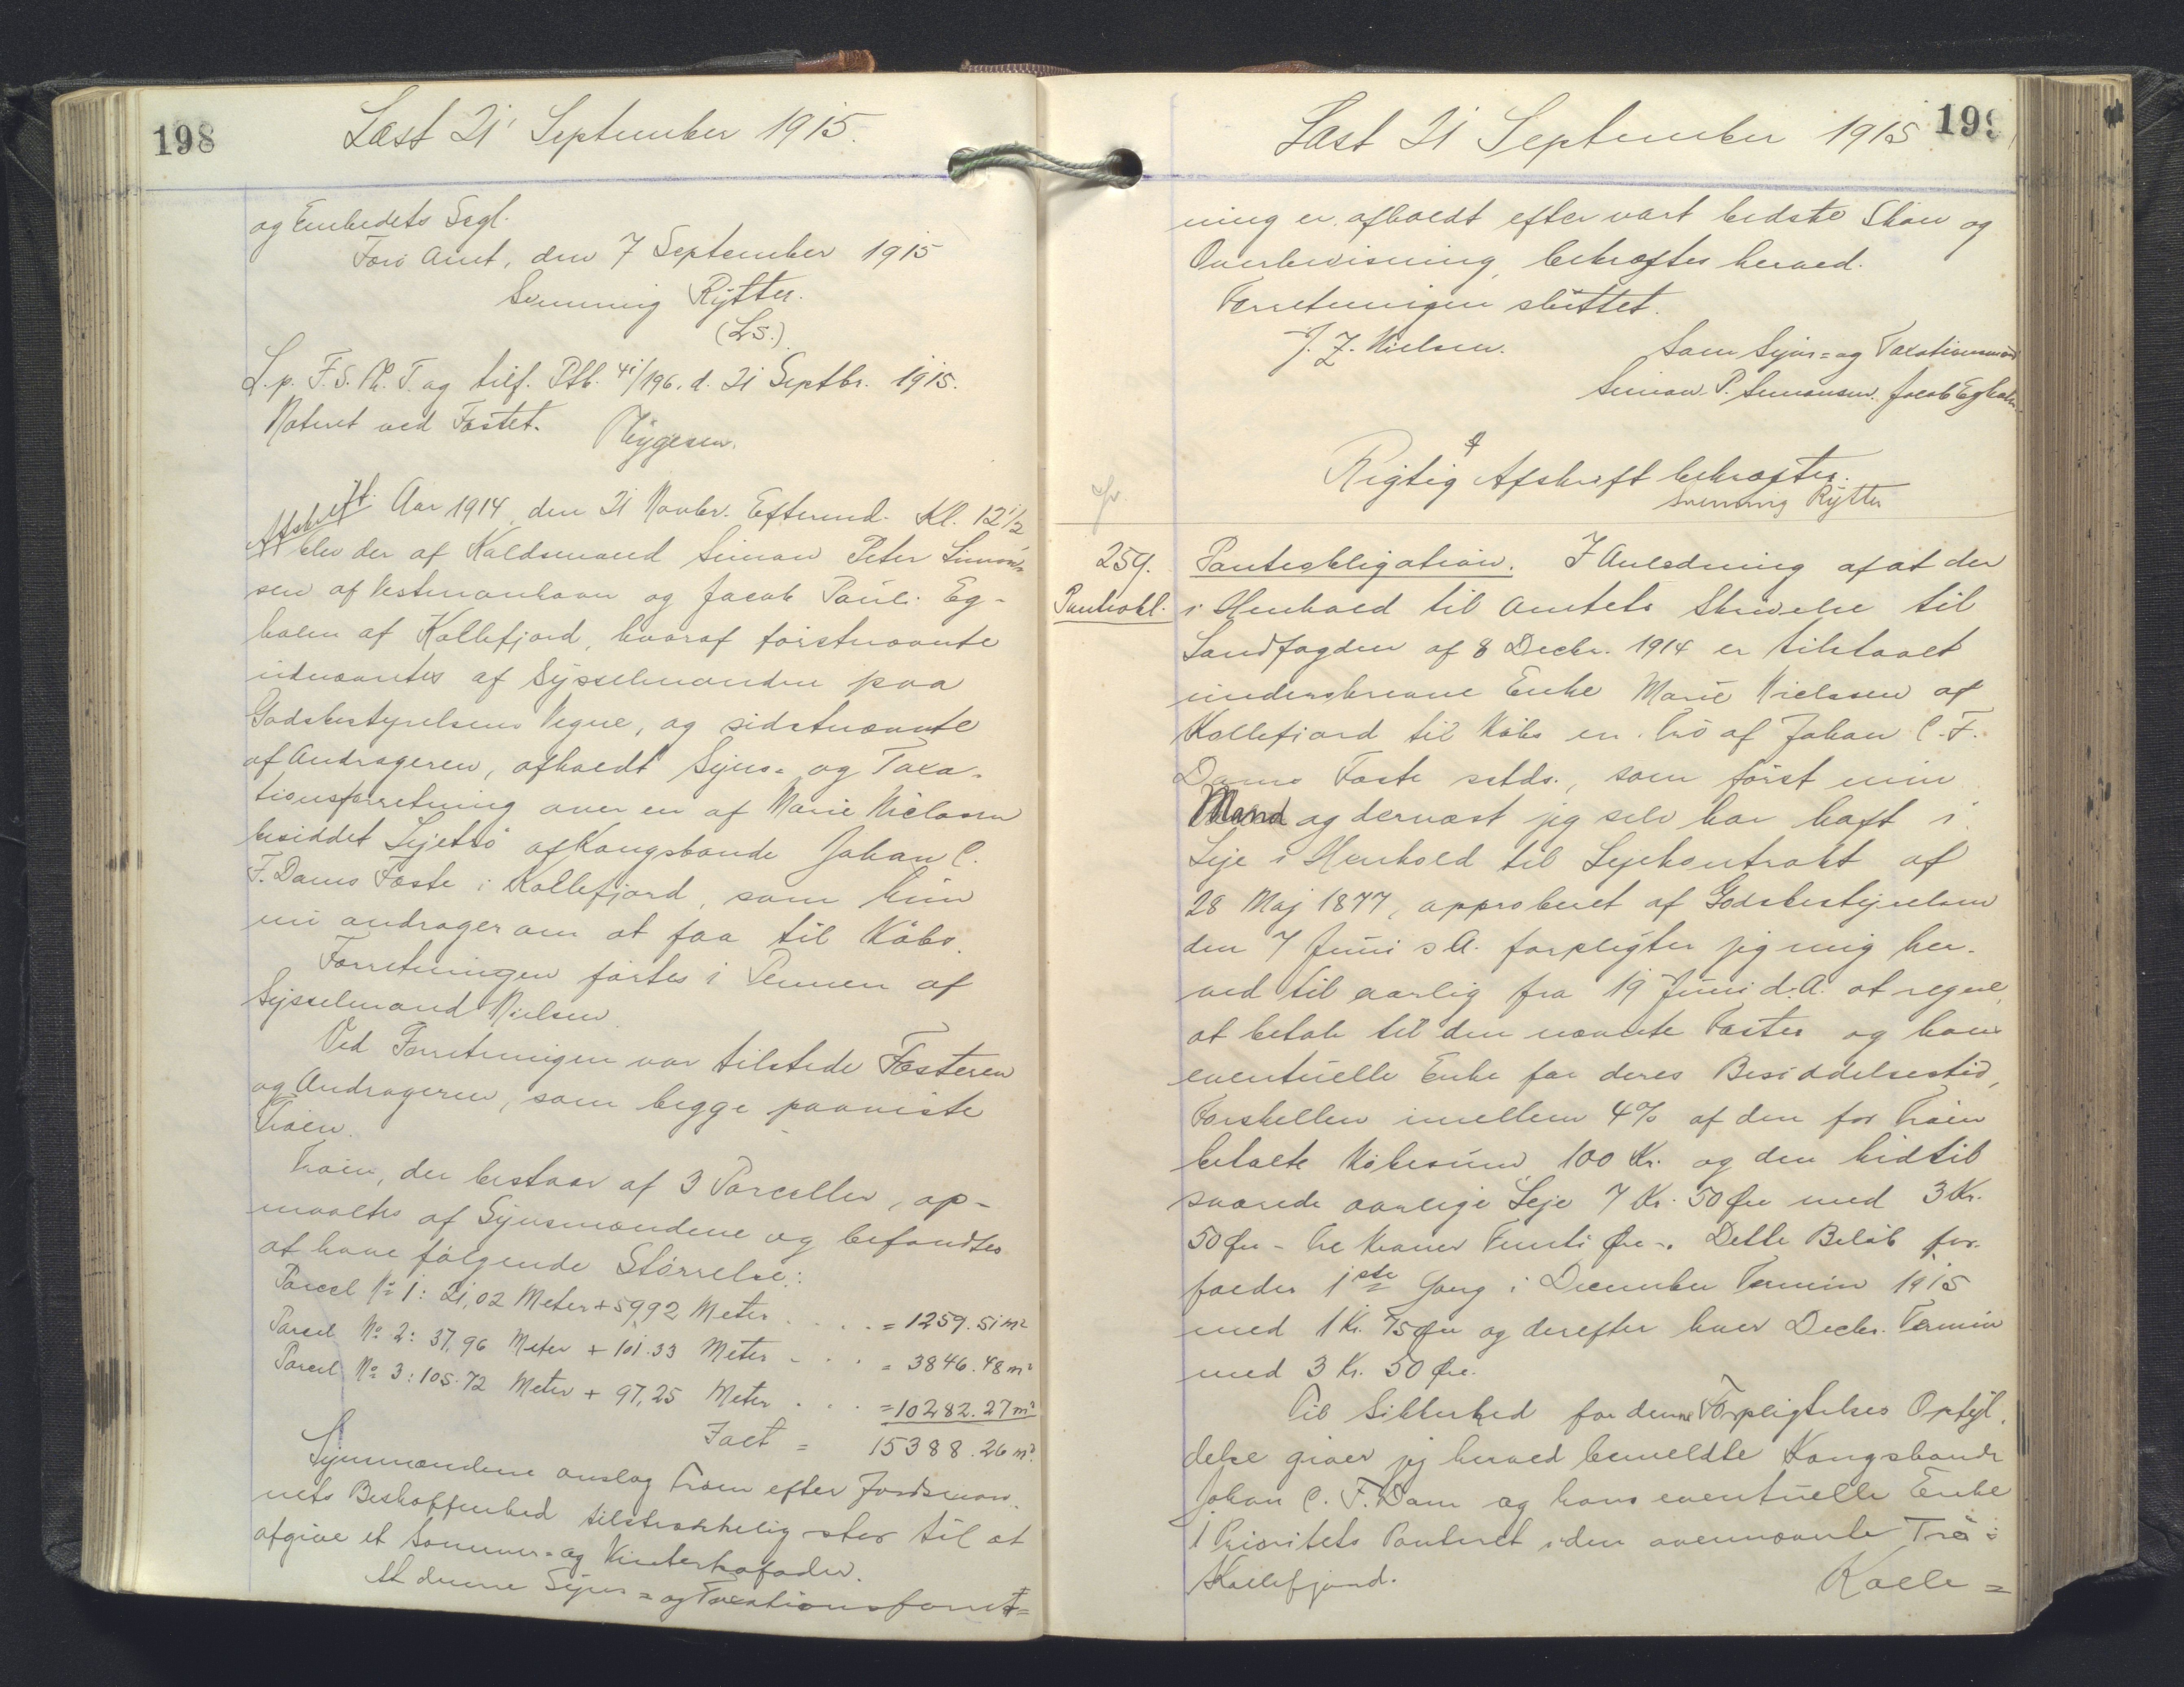 198
Læst 21' September 1915.
og Embedets Segl.
Færø Amt, den 7 September 1915
Svenning Rytter.
(Ls.)
L.p. F.S.Æ.T. og tilf. Ptb. 41/196. d. 21 Septbr. 1915.
Noteret ved Fæstet.
Afskrift. Aar 1914, den 21 Novbr. Eftermd. Kl. 12½
blev der af Kaldsmand Simon Peter Simon=
sen af Vestmanhavn og Jacob Pauli Eg-
holm af Kollefjord, hvoraf førstnævnte
udnævntes af Sysselmanden paa
Godsbestyrelsens Vegne, og sidstnævnte
af Andrageren, afholdt Syns= og Taxa-
tionsforretning over en af Marie Nielsen
besiddet Lejetrø af Kongsbonde Johan C.
F. Dams Fæste i Kollefjord, som hun
nu andrager om at faa til Købs.
Forretningen førtes i Pennen af
Sysselmand Nielsen.
Ved Forretningen var tilstede Fæsteren
og Andrageren, som begge paaviste
Trøen.
Trøen, der bestaar af 3 Parceller, op-
maaltes af Synsmændene og befandtes
at have følgende Størrelse:
Parcel № 1: 21,02 Meter + 59,92 Meter .... = 1259.51 m²
Parcel № 2: 37,96 Meter + 101.33 Meter ... = 3846.48 m²
Parcel № 3: 105.72 Meter + 97,25 Meter ... = 10282.27 m²
Jalt = 15388.26 m².
Synsmændene anslog Trøen efter Jordsmon-
nets Beskaffenhed tilstrækkelig stor til at
afgive et Sommer= og Vinterkofoder.
At denne Syns= og Taxationsforret=
199
Læst 21 September 1915
ning er afholdt efter vort bedste Skøn og
Overbevisning, bekræftes herved.
Forretningen sluttet.
J. Z. Nielsen. Som Syns= og Taxationsmænd
Simon P. Simonsen. Jacob Egholm.
Rigtig Afskrift bekræftes.
Svenning Rytter
259.
Pantobl.
Panteobligation. I Anledning af at der
i Henhold til Amtets Skrivelse til
Landfogden af 8 Decbr. 1914 er tilstaaet
underskrevne Enke Marie Nielssen af
Kollefjord til Købs en Trø af Johan C. F.
Dams Fæste sstds., som først min
Mand og dernæst jeg selv har haft i
Leje i Henhold til Lejekontrakt af
28 Maj 1877, approberet af Godsbestyrelsen
den 7 Juni s.A. forpligter jeg mig her-
ved til aarlig fra 19 Juni d.A. at regne,
at betale til den nævnte Fæster og hans
eventuelle Enke for deres Besiddelsestid,
Forskellen imellem 4% af den for Trøen
betalte Købesum 100 Kr. og den hidtil
svarede aarlige Leje 7 Kr. 50 Øre med 3 Kr.
50 Øre - tre Kroner Femti Øre -. Dette Beløb for-
falder 1ste Gang i December Termin 1915
med 1 Kr. 75 Øre og derefter hver Decbr. Termin
med 3 Kr. 50 Øre.
Til Sikkerhed for denne Forpligtelses Opfyl-
delse giver jeg herved bemeldte Kongsbonde
Johan C. F. Dam og hans eventuelle Enke
1 Prioritets Panteret i den ovennævnte Trø i
Kollefjord.
Kolle=